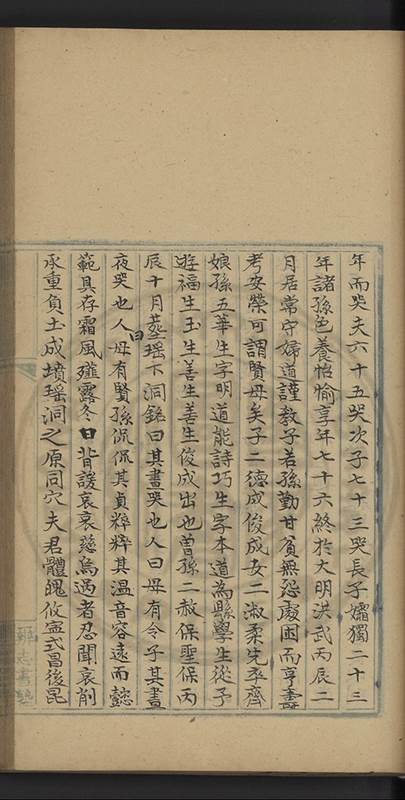 年而哭夫六十五哭次子七十三哭長子孀獨二十三
年諸孫色養怡愉享年七十六終於大明洪武丙辰二
月居常守婦道謹教子若孫勤甘貧無怨處困而亨壽
考安榮可謂賢母矣子二德成俊成女二淑柔先卒齊
娘孫五華生字明道能詩巧生字本道為縣學生從予
遊福生玉生善生善生俊成出也曾孫二赦保聖保丙
辰十月葬瑶下洞銘曰其晝哭也人曰母有令子其晝
夜哭也人曰母有賢孫侃侃其貞粹粹其溫音容遠而懿
範具存霜風殲露冬日背諼哀哀慈烏過者忍聞哀削
承重負土成墳瑶洞之原同穴夫君體魄攸寍式昌後昆